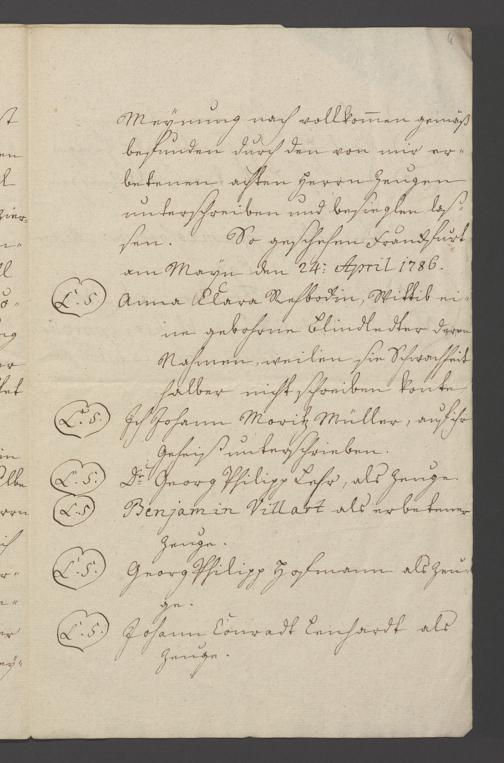 Meÿnung nach vollkom̅en gemäß
befunden durch den von mir er-
betenen achten Herrn Zeugen
unterschreiben und besieglen las-
sen. So geschehen Franckfurt
am Mayn den 24: April 1786.
(L. S) Anna Clara Rehbodin, Wittib ei-
ne gebohrne Blindledter deren
Nahmen, weilen sie Schwachheit
halber nicht schreiben konte
(L. S.) Ich Johann Moritz Müller, auf ihr
Geheiß unterschrieben.
(L. S.) Dr. Georg Philipp Lehr, als Zeuge.
(L. S) Benjamin Villart als erbetener
Zeuge.
(L. S.) Georg Philipp Hofmann als Zeu-
ge.
(L. S.) Johann Conradt Lenhardt als
Zeuge.